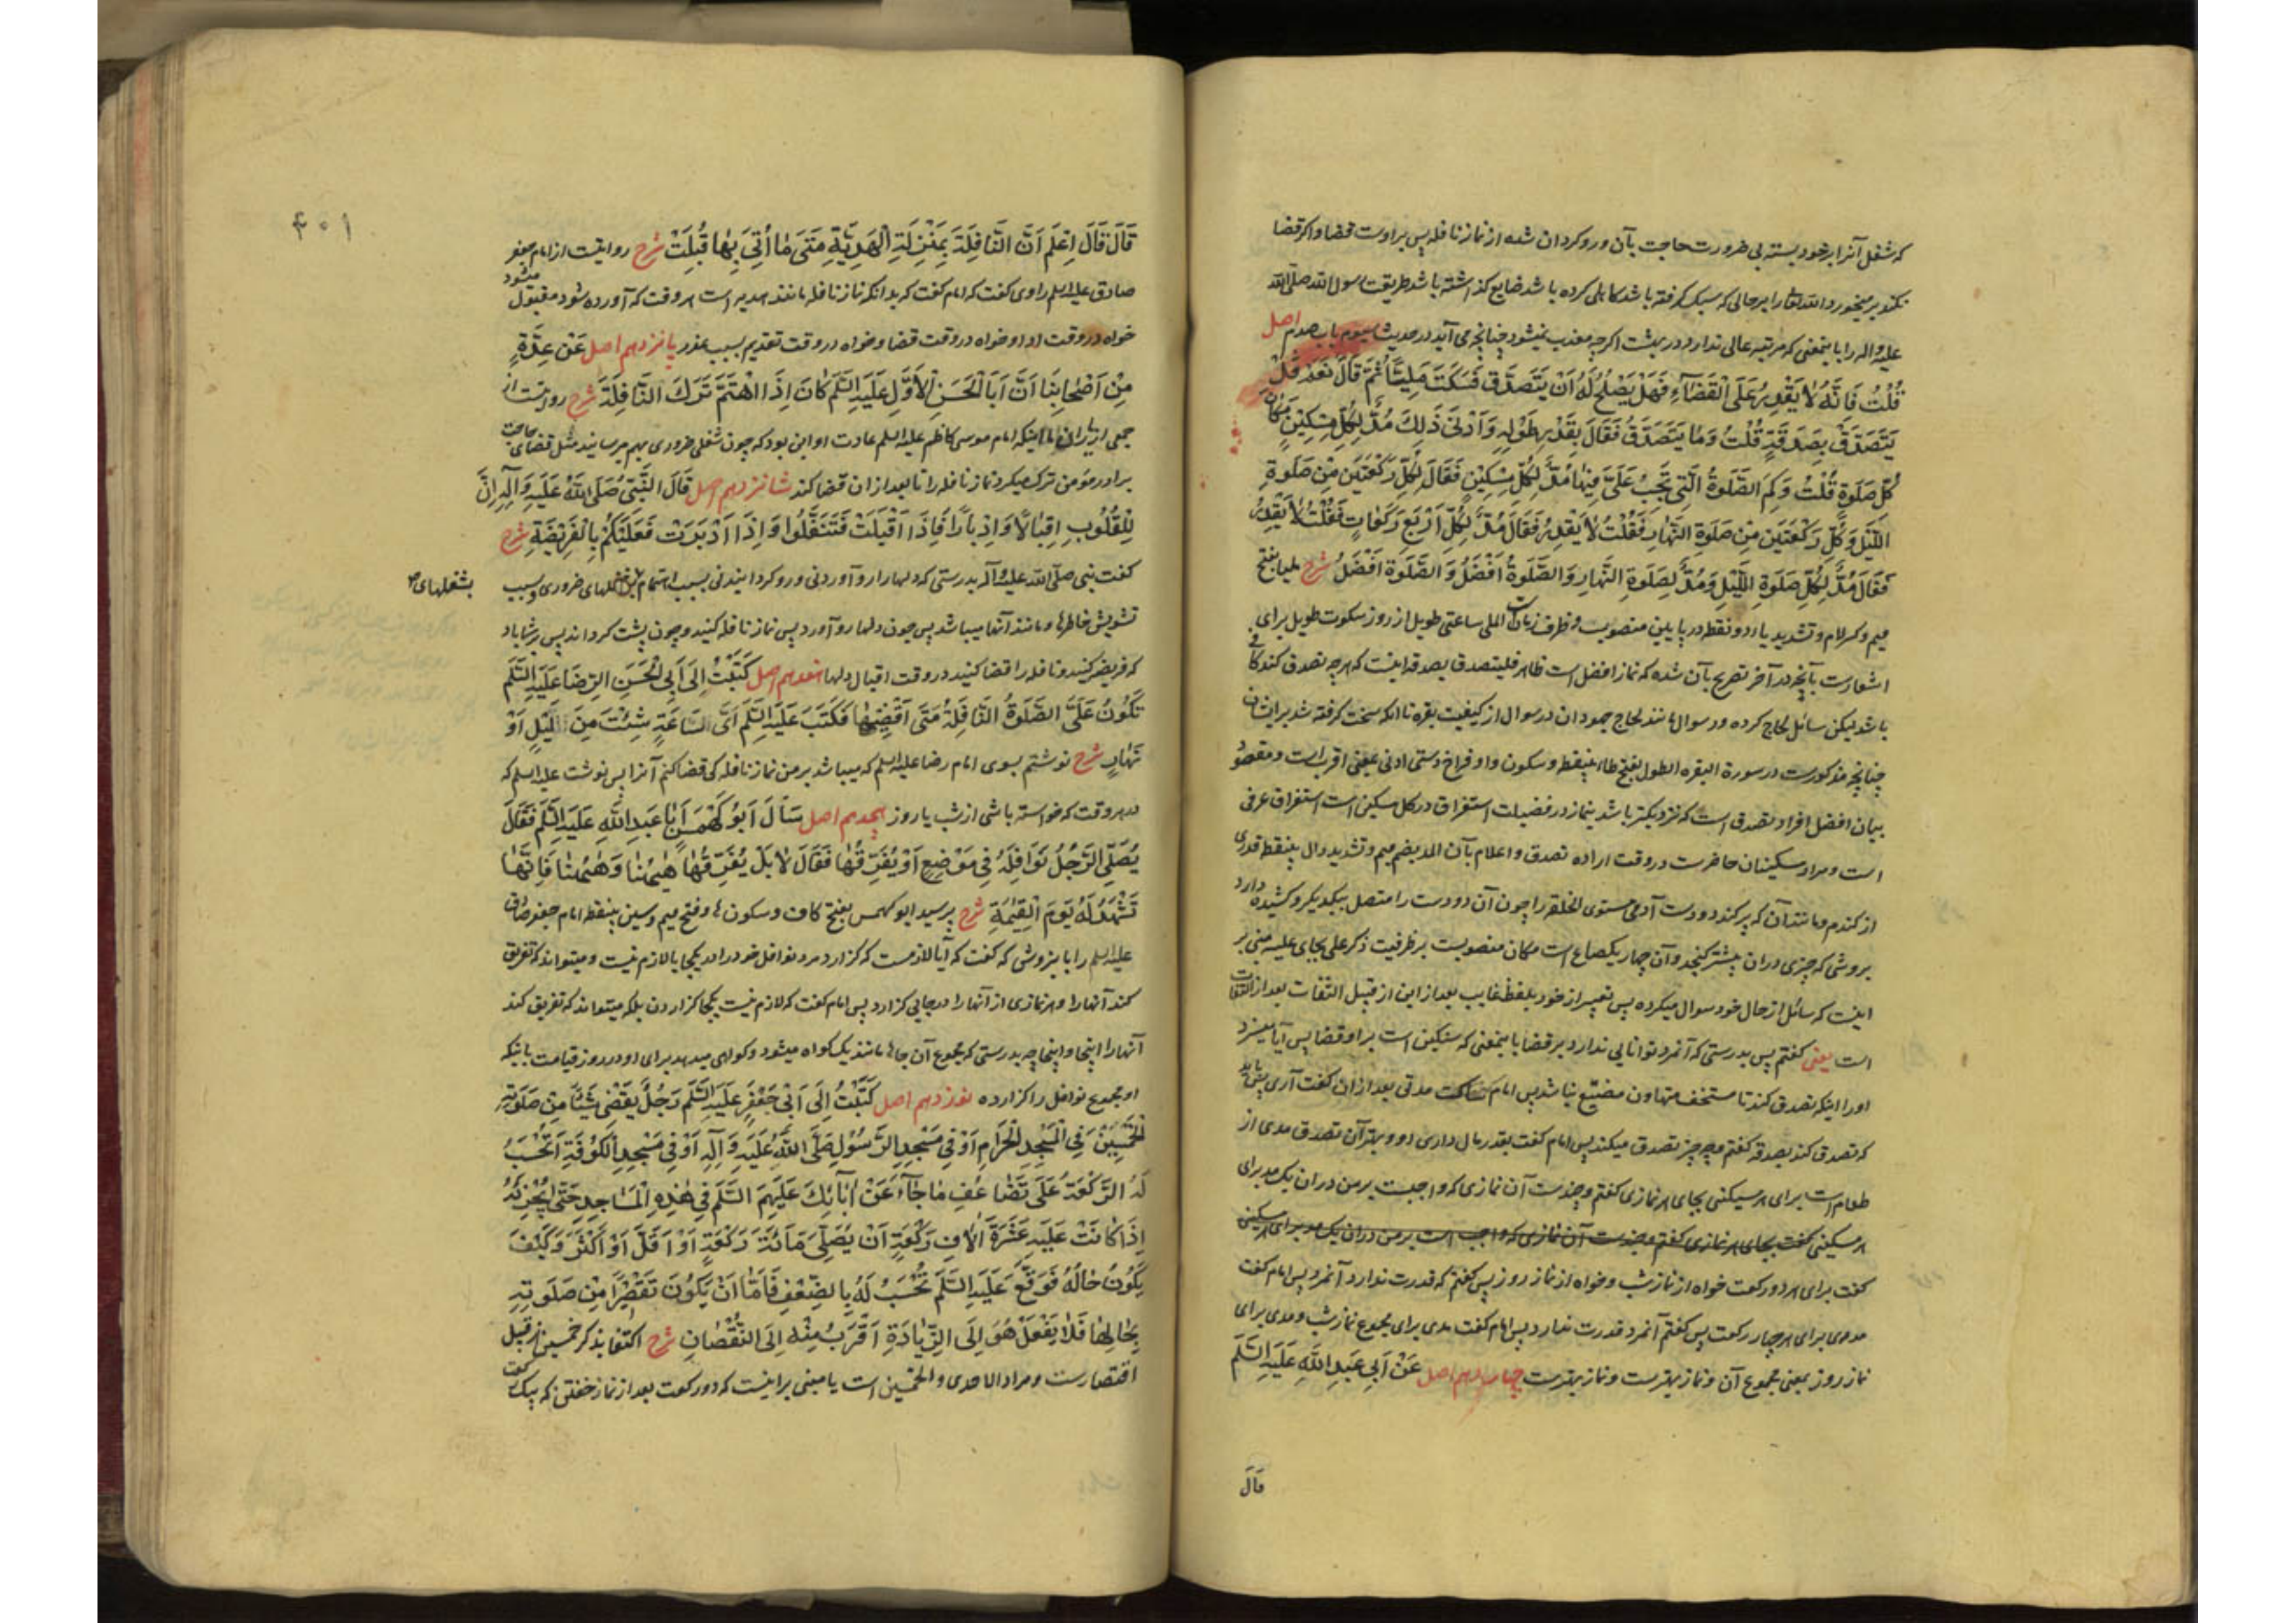 که شغل آنرا بر خود بسته بی ضرورت حاجت بآن و رو کردان شده از نماز نافله پس بر اوست قضا و اکر قضا
نکند بر میخورد الله تعالی را بر حالی که سبک کرفته باشد کاهلی کرده باشد ضایع کذاشته باشد طریقت رسول الله صلی الله
علیه و اله را باینمعنی که مرتبه عالی ندارد در بهشت اکرچه معذب نمیشود چنانچه می آید در حدیث سیوم باب صدم اصل
قُلْتُ فَاِنَّهُ لاٰ یَقْدِرُ عَلَی الْقَضٰاۤءِ فَهَلْ یَصْلُحُ لَهُ اَنْ یَتَصَدَّقَ فَسَکَتَ مَلِیًّا ثُمَّ قَالَ نَعَمْ فَلْ
یَتَصَدَّقْ بِصَدَقَةٍ قُلْتُ وَمٰا یَتَصَدَّقُ فَقَالَ بِقَدْرِ طَوْلِهِ وَاَدْنٰی ذٰلِكَ مُدٌّ لِکُلِّ مِسْکِیْنٍ مَکٰانَ
کُلِّ صَلٰوةٍ قُلْتُ وَکَمِ الصَّلٰوةُ الَّتِیْ تَجِبُ عَلَیَّ فِیْهٰا مُدٌّ لِکُلِّ مِسْکِیْنٍ فَقَالَ لِکُلِّ رَکْعَتَیْنِ مِنْ صَلٰوةِ
اللَّیْلِ وَکُلِّ رَکْعَتَیْنِ مِنْ صَلٰوةِ النَّهٰارِ فَقُلْتُ لاٰ یَقْدِرُ فَقَالَ مُدٌّ لِکُلِّ اَرْبَعِ رَکَعٰاتٍ فَقُلْتُ لاٰ یَقْدِرُ
فَقَالَ مُدٌّ لِکُلِّ صَلٰوةِ اللَّیْلِ وَمُدٌّ لِصَلٰوةِ النَّهٰارِ وَالصَّلٰوةُ اَفْضَلُ وَ الصَّلٰوةُ اَفْضَلُ شرح ملیا بفتح
میم و کسر لام و تشدید یاء دو نقطه در پایین منصوبست و ظرف زمان الملی ساعتی طویل از روز سکوت طویل برای
اشعارست بآنچه در آخر تصریح بآن شده که نماز افضل است ظاهر فلیتصدق بصدقة اینست که هر چه تصدق کند کافی
باشد لیکن سائل لجاج کرده در سوال مانند لجاج جهودان در سوال از کیفیت بقره تا انکه سخت کرفته شد بر ایشان
چنانچه مذکورست در سورة البقره الطول بفتح طاء بینقطه و سکون واو فراخ دستی ادنی بمعنی اقرب است و مقصود
بیان افضل افراد تصدقی است که نزدیکتر باشد بنماز در فضیلت استغراق در کل مسکین است استغراق عرفی
است و مراد مسکینان حاضرست در وقت اراده تصدق و اعلام بآن المد بضم میم و تشدید دال بینقطه قدری
از کندم و مانند آن که پر کند دو دست آدمی مستوی الخلقه را چون آن دو دست را متصل بیکدیکر و کشیده دارد
بروشی که چیزی در ان بیشتر کنجد و آن چهار یکصاع است مکان منصوبست بر ظرفیت ذکر علی بجای علیه مبنی بر
اینست که سائل از حال خود سوال میکرده پس تعبیر از خود بلفظ غایب بعد از این از قبیل التفات بعد از التفات
است یعنی کفتم پس بدرستی که آنمرد توانایی ندارد بر قضا باینمعنی که سنکین است بر او قضا پس آیا میسزد
او را اینکه تصدق کند تا مستخف متهاون مضیّع نباشد پس امام ساکت مدتی بعد از ان کفت آری باید
که تصدق کند بصدقه کفتم و چه چیز تصدق میکند پس امام کفت بقدر مال داری او و بهتر آن تصدق مدی از
طعام است برای هر مسکینی بجای هر نمازی کفتم و چندست آن نمازی که واجبست بر من در ان یک مد برای
هر مسکینی کفت بجای هر نمازی کفتم و چندست آن نمازی که واجب است بر من در ان یک مد برای هر مسکینی
کفت برای هر دو رکعت خواه از نماز شب و خواه از نماز روز پس کفتم که قدرت ندارد آنمرد پس امام کفت
مدی برای هر چهار رکعت پس کفتم آنمرد قدرت ندارد پس امام کفت مدی برای مجموع نماز شب و مدی برای
نماز روز یعنی مجموع آن و نماز بهترست و نماز بهترست چهاردهم اصل عَنْ اَبِیْ عَبْدِ اللّٰهِ عَلَیْهِ السَّلَم
قَالَ
۴۰۱
قَالَ قَالَ اِعْلَمْ اَنَّ النَّافِلَةَ بِمَنْزِلَةِ الْهَدِیَّةِ مَتٰی مٰا اُتِیَ بِهٰا قُبِلَتْ شرح روایتست از امام جعفر
صادق علیه السلم راوی کفت که امام کفت که بدانکه نماز نافله مانند هدیه است هر وقت که آورده شود مقبول میشود
خواه در وقت ادا و خواه در وقت قضا و خواه در وقت تقدیم بسبب عذر پانزدهم اصل عَنْ عِدَّةٍ
مِنْ اَصْحٰابِنَا اَنَّ اَبَا الْحَسَنِ الْاَوَّلِ عَلَیْهِ السَّلَم کٰانَ اِذَا اهْتَمَّ تَرَكَ النَّافِلَةَ شرح روایتست از
جمعی از یاران ما اینکه امام موسی کاظم علیه السلم عادت او این بود که چون شغلی ضروری بهم میرسانید مثل قضای حاجت
برادر مؤمن ترک میکرد نماز نافله را تا بعد از ان قضا کند شانزدهم اصل قَالَ النَّبِیُّ صَلَّی اللّٰهُ عَلَیْهِ وَاٰلِهِ اِنَّ
لِلْقُلُوبِ اِقْبٰالاً وَاِدْبٰارًا فَاِذَا اَقْبَلَتْ فَتَنَفَّلُوا وَاِذَا اَدْبَرَتْ فَعَلَیْکُمْ بِالْفَرِیْضَةِ شرح
کفت نبی صلی الله علیه و آله بدرستی که دلها را رو آوردنی و رو کردانیدنی بسبب اهتمام ضروری و بسبب
بشغلهای
تشویش خاطرها و مانند آنها میباشد پس چون دلها رو آورد پس نماز نافله کنید و چون پشت کرداند پس بر شما باد
که فریضه کنید و نافله را قضا کنید در وقت اقبال دلها هفدهم اصل کَتَبْتُ اِلٰی اَبِی الْحَسَنِ الرِّضَا عَلَیْهِ السَّلَم
تَکُونُ عَلَیَّ الصَّلٰوةُ النَّافِلَةُ مَتٰی اَقْضِیْهٰا فَکَتَبَ عَلَیْهِ السَّلَم اَیَّ سَاعَةٍ شِئْتَ مِنْ لَیْلٍ اَوْ
نَهٰارٍ شرح نوشتم بسوی امام رضا علیه السلم که میباشد بر من نماز نافله کی قضا کنم آنرا پس نوشت علیه السلم که
در هر وقت که خواسته باشی از شب یا روز هجدهم اصل سَأَلَ اَبُو کَهْمَسٍ اَبٰا عَبْدِ اللّٰهِ عَلَیْهِ السَّلَم فَقَالَ
یُصَلِّی الرَّجُلُ نَوَافِلَهُ فِیْ مَوْضِعٍ اَوْ یُفَرِّقُهٰا فَقَالَ لاٰ بَلْ یُفَرِّقُهٰا هٰیهُنٰا وَهٰیهُنٰا فَاِنَّهٰا
تَشْهَدُ لَهُ یَوْمَ الْقِیٰمَةِ شرح پرسید ابو کهمس بفتح کاف و سکون هاء و فتح میم و سین بینقطه امام جعفر صادق
علیه السلم را باین روشی که کفت که آیا لازمست که کزارد مرد نوافل خود را در یکجا یا لازم نیست و میتواند که تفریق
کند آنها را و هر نمازی از آنها را در جایی کزارد پس امام کفت که لازم نیست یکجا کزاردن بلکه میتواند که تفریق کند
آنها را اینجا و اینجا چه بدرستی که مجموع آن جاها مانند یک کواه میشود و کواهی میدهد برای او در روز قیامت باینکه
او مجموع نوافل را کزارده نوزدهم اصل کَتَبْتُ اِلٰی اَبِیْ جَعْفَرٍ عَلَیْهِ السَّلَم رَجُلٌ یَقْضِیْ شَیْئًا مِنْ صَلٰوتِهِ
الْخَمْسِیْنَ فِی الْمَسْجِدِ الْحَرٰامِ اَوْ فِیْ مَسْجِدِ الرَّسُوْلِ صَلَّی اللّٰهُ عَلَیْهِ وَاٰلِهِ اَوْ فِیْ مَسْجِدِ الْکُوْفَةِ اَتُحْسَبُ
لَهُ الرَّکْعَةُ عَلٰی تَضٰاعُفِ مٰا جٰاۤءَ عَنْ اٰبٰائِكَ عَلَیْهِمُ السَّلَم فِیْ هٰذِهِ الْمَسٰاجِدِ حَتّٰی یُجْزِئَهُ
اِذَا کٰانَتْ عَلَیْهِ عَشَرَةُ اٰلٰافِ رَکْعَةٍ اَنْ یُصَلِّیَ مِائَةَ رَکْعَةٍ اَوْ اَقَلَّ اَوْ اَکْثَرَ وَکَیْفَ
یَکُونُ حٰالُهُ فَوَقَّعَ عَلَیْهِ السَّلَم تُحْسَبُ لَهُ بِالضِّعْفِ فَاَمَّا اَنْ یَکُونَ تَقْصِیْرًا مِنْ صَلٰوتِهِ
بِحٰالِهٰا فَلاٰ یَفْعَلْ هُوَ اِلَی الزِّیٰادَةِ اَقْرَبُ مِنْهُ اِلَی النُّقْصٰانِ شرح اکتفا بذکر خمسین از قبیل
اقتصارست و مراد الاحدی و الخمسین است یا مبنی بر اینست که دو رکعت بعد از نماز خفتن که بیک رکعت